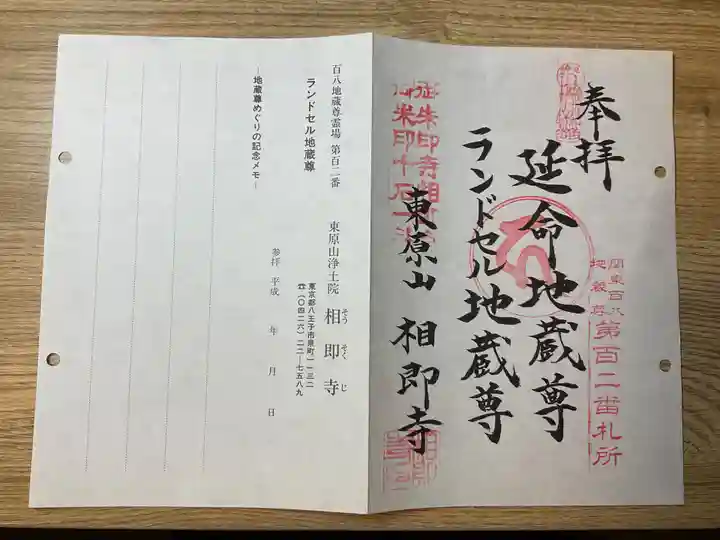 奉拝
延命地蔵尊
ランドセル地蔵尊
東原山 相即寺
関東百八
地蔵尊
第百二番札所
御朱印寺相即寺
百八地蔵尊霊場 第百二番
ランドセル地蔵尊
―地蔵尊めぐりの記念メモ―
東原山浄土院 相即寺
そう そく じ
東京都八王子市泉町一一三二
☎(〇四二六)二二―七五八九
参拝 平成 年 月 日